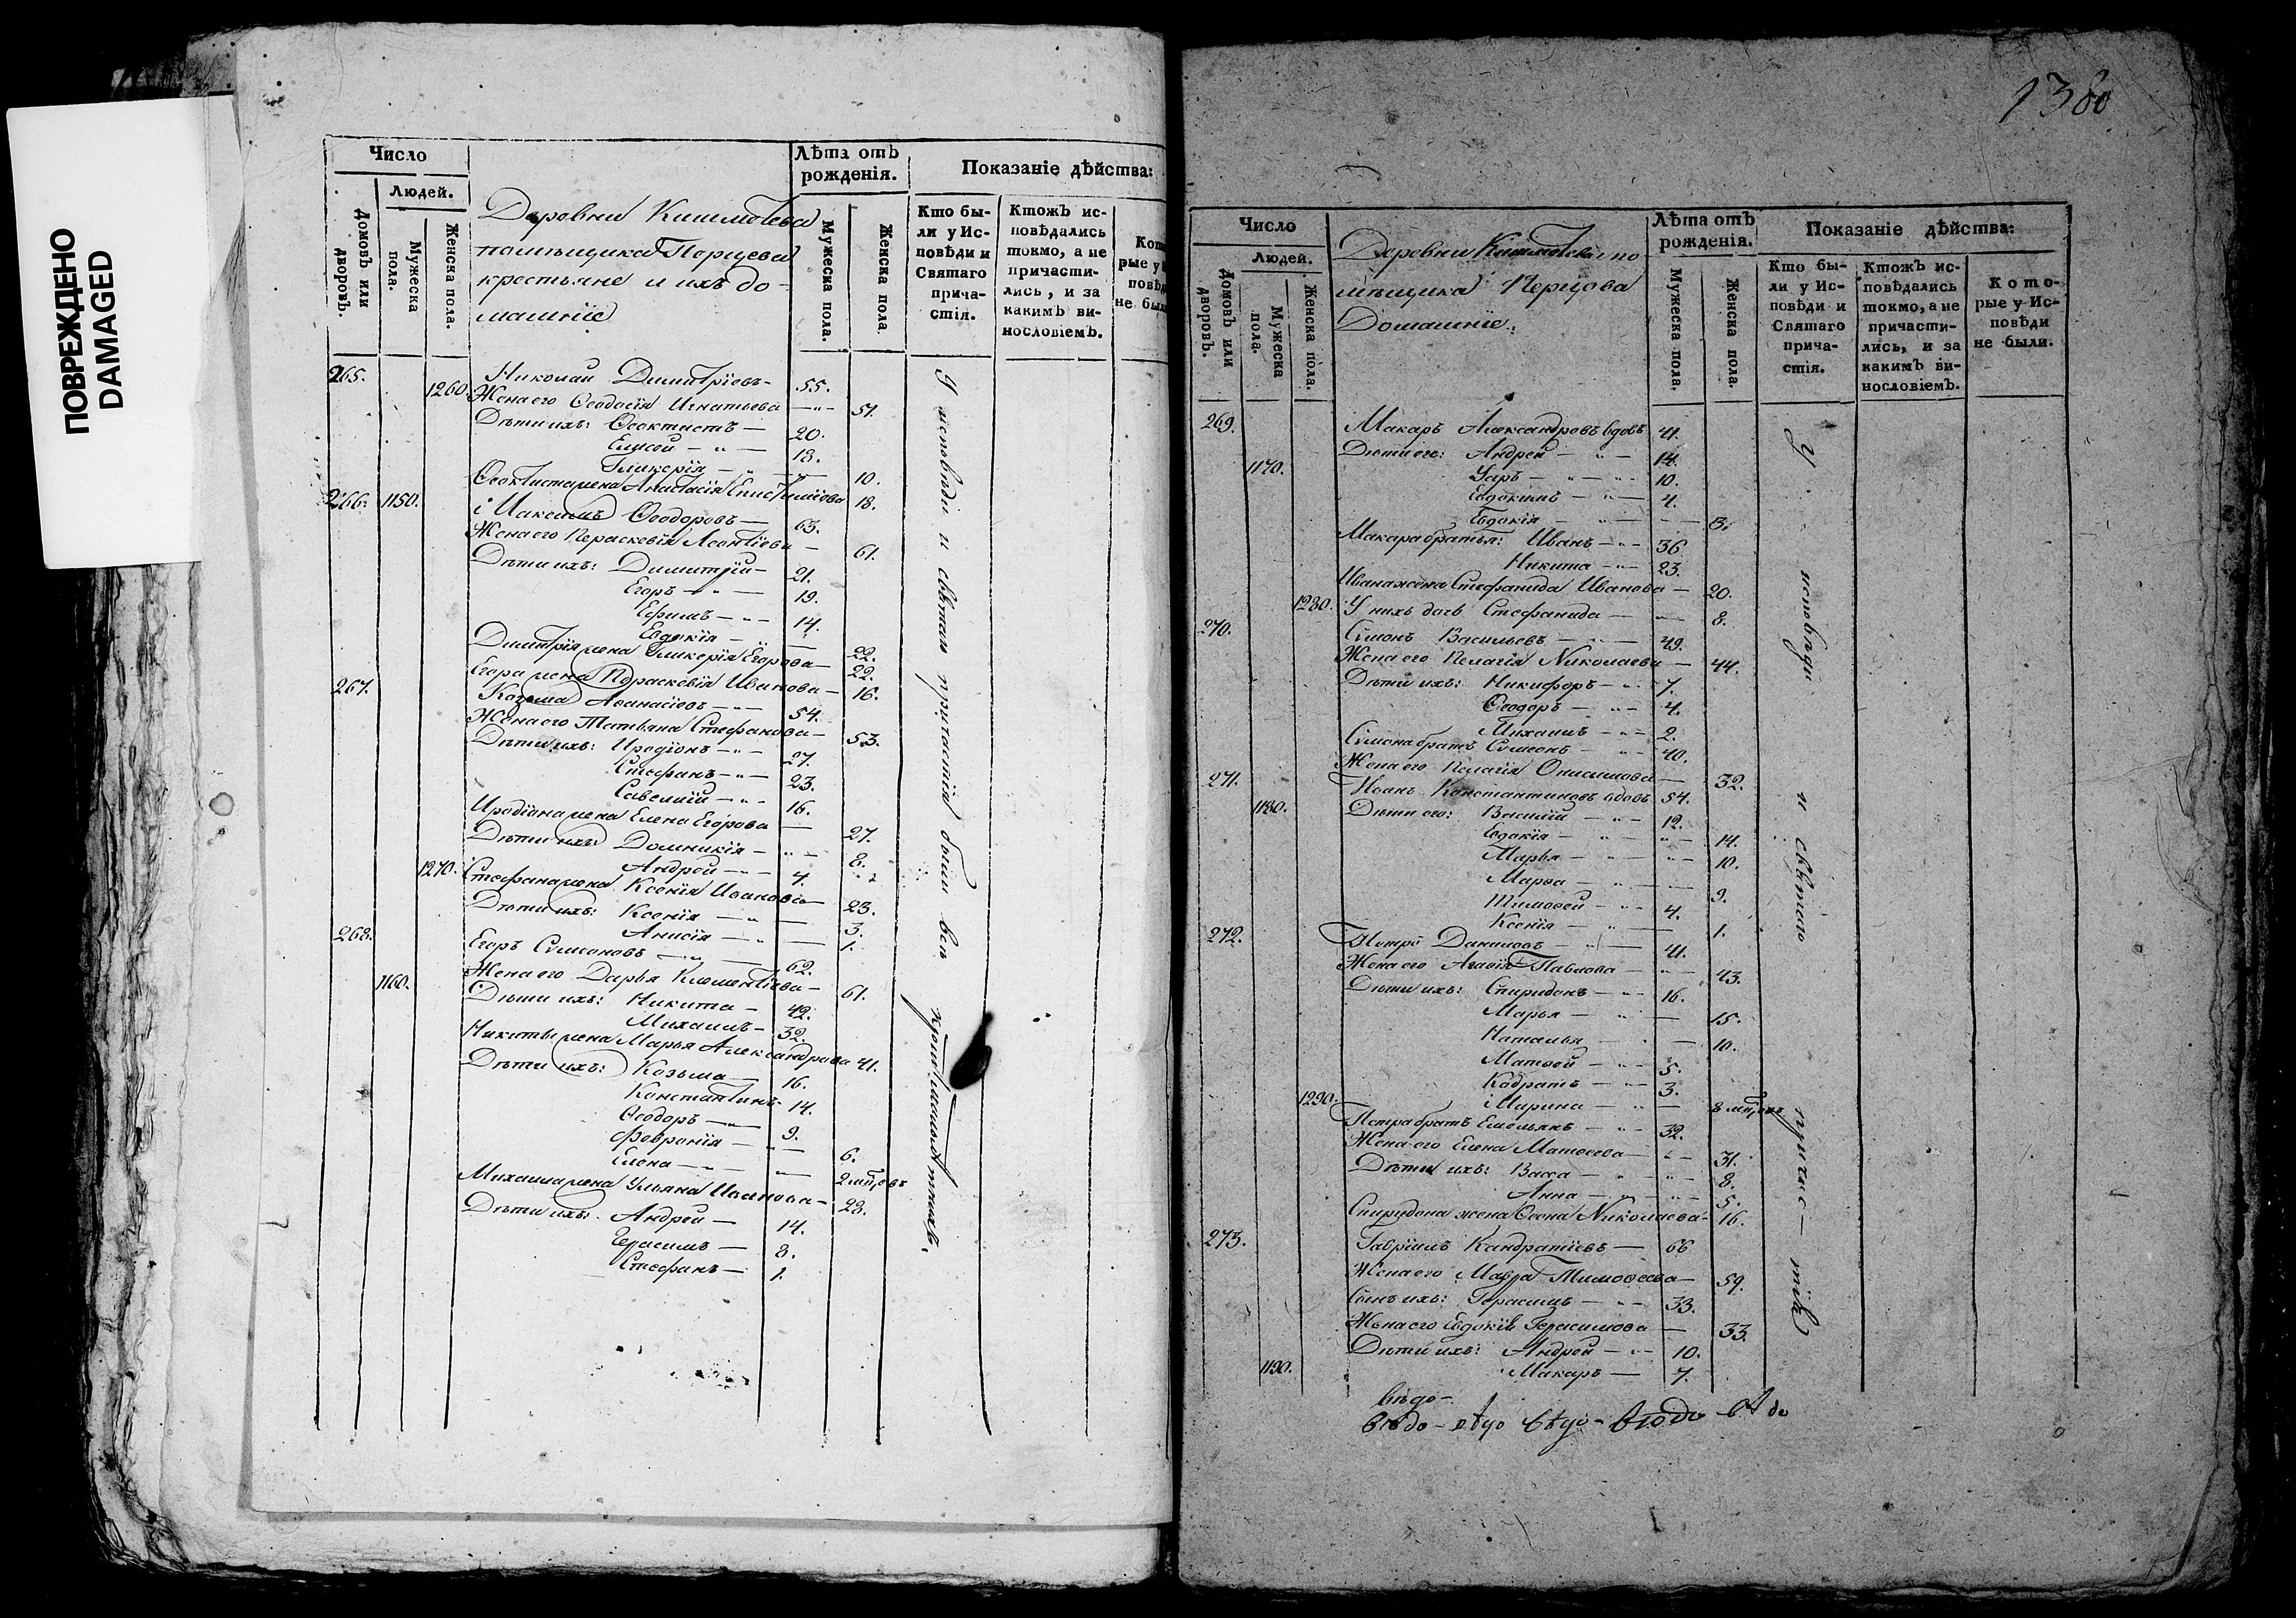 ПОВРЕЖДЕНО
DAMAGED
Число
Людей.
Домовъ или дворовъ.
Мужеска пола.
Женска пола.
Деревни
помѣщика Перцева
крестьяне и ихъ до-
машніе
Лѣта отъ рожденія.
Мужеска пола.
Женска пола.
Показаніе дѣйства:
Кто бы-
ли у Ис-
повѣди и
Святаго
прича-
стія.
Ктожъ ис-
повѣдались
токмо, а не
причасти-
лись, и за
какимъ ви-
нословіемъ.
265. Николай Димитріевъ - 55.
1260. Жена его Ѳеодосія Игнатьева — 51.
Дѣти ихъ: Ѳеоктистъ — 20.
Елисей — 13.
Гликерія — 10.
Ѳеоктиста жена Анастасія 18.
266. 1150. Максимъ Ѳеодоровъ — 63.
Жена его Параскевія Леонтіева — 61.
Дѣти ихъ: Димитрій — 21.
Егоръ — 19.
Ефимъ — 14.
Евдокія —
Димитрія жена Гликерія Егорова — 22.
Егора жена Параскевія Иванова — 22.
267. Козьма Аѳанасіевъ — 54.
16.
Жена его Татьяна Стефанова — 53.
Дѣти ихъ: Иродіонъ — 27.
Стефанъ — 23.
Савелій — 16.
Иродіона жена Елена Егорова — 27.
Дѣти ихъ: Домникія — 8.
Андрей — 4.
1270. Стефана жена Ксенія Иванова — 23.
Дѣти ихъ: Ксенія — 3.
Анисія — 1.
268. Егоръ Сѵмеоновъ — 62.
Жена его Дарья Клементіева — 61.
1160. Дѣти ихъ: Никита — 42.
Михаилъ — 32.
Никиты жена Марья Александрова 41.
Дѣти ихъ: Козьма — 16.
Константинъ 14.
Ѳеодоръ — 9.
Февронія — 6.
Елена — 2 мѣс,овъ
Михаила жена Ульяна Иванова — 28.
Дѣти ихъ: Андрей — 14.
Герасимъ — 8.
Стефанъ — 1.
У исповѣди и святаго причастія были всѣ
1380
Число
Людей.
Домовъ или дворовъ.
Мужеска пола.
Женска пола.
Деревни по
мѣщика Перцова
Домашніе.
Лѣта отъ рожденія.
Мужеска пола.
Женска пола.
Показаніе дѣйства:
Кто бы-
ли у Ис-
повѣди и
Святаго
прича-
стія.
Ктожъ ис-
повѣдались
токмо, а не
причасти-
лись, и за
какимъ ви-
нословіемъ.
Кото-
рые у Ис-
повѣди
не были.
269. Макаръ Александровъ вдовъ 41.
Дѣти его: Андрей — 14.
1170. Уаръ — 10.
Евдокимъ — 4.
Евдокія — 3.
Макара братья: Иванъ — 36
Никита — 23.
Ивана жена Стефанида Иванова — 20.
1280. У нихъ дочь Стефанида — 8.
270. Сѵмонъ Васильевъ — 49.
Жена его Пелагія Николаева — 44.
Дѣти ихъ: Никифоръ — 7.
Ѳеодоръ — 4.
Михаилъ — 2.
Сѵмона братъ Сѵмеонъ — 40.
Жена его Пелагія Онисимова — 32.
271. Іоанъ Константиновъ вдовъ 54.
1180. Дѣти его: Василій — 12.
Евдокія — 14.
Марья — 10.
Марѳа — 9.
Тимоѳей — 4.
Ксенія — 1.
272. Петръ Даниловъ — 41.
Жена его Агаѳія Павлова — 43.
Дѣти ихъ: Спиридонъ — 16.
Марья — 15.
Наталья — 10.
Матвей — 5.
Кодратъ — 3.
1290. Марина — 8 мѣс,овъ
Петра братъ Емельянъ — 32.
Жена его Елена Матѳеева — 31.
Дѣти ихъ: Васса — 8.
Анна — 5.
Спиридона жена Ѳеона Николаева 16.
273. Гавріилъ Кандратіевъ — 66
Жена его Мавра Тимоѳеева — 59.
Сынъ ихъ: Герасимъ — 33.
Жена его Евдокія Герасимова — 33.
Дѣти ихъ: Андрей — 10.
1190. Макаръ — 7.
У исповѣди и святаго причас-тія
вѣдо-
вѣдо - вѣдо вѣдо - вѣдо вѣдо